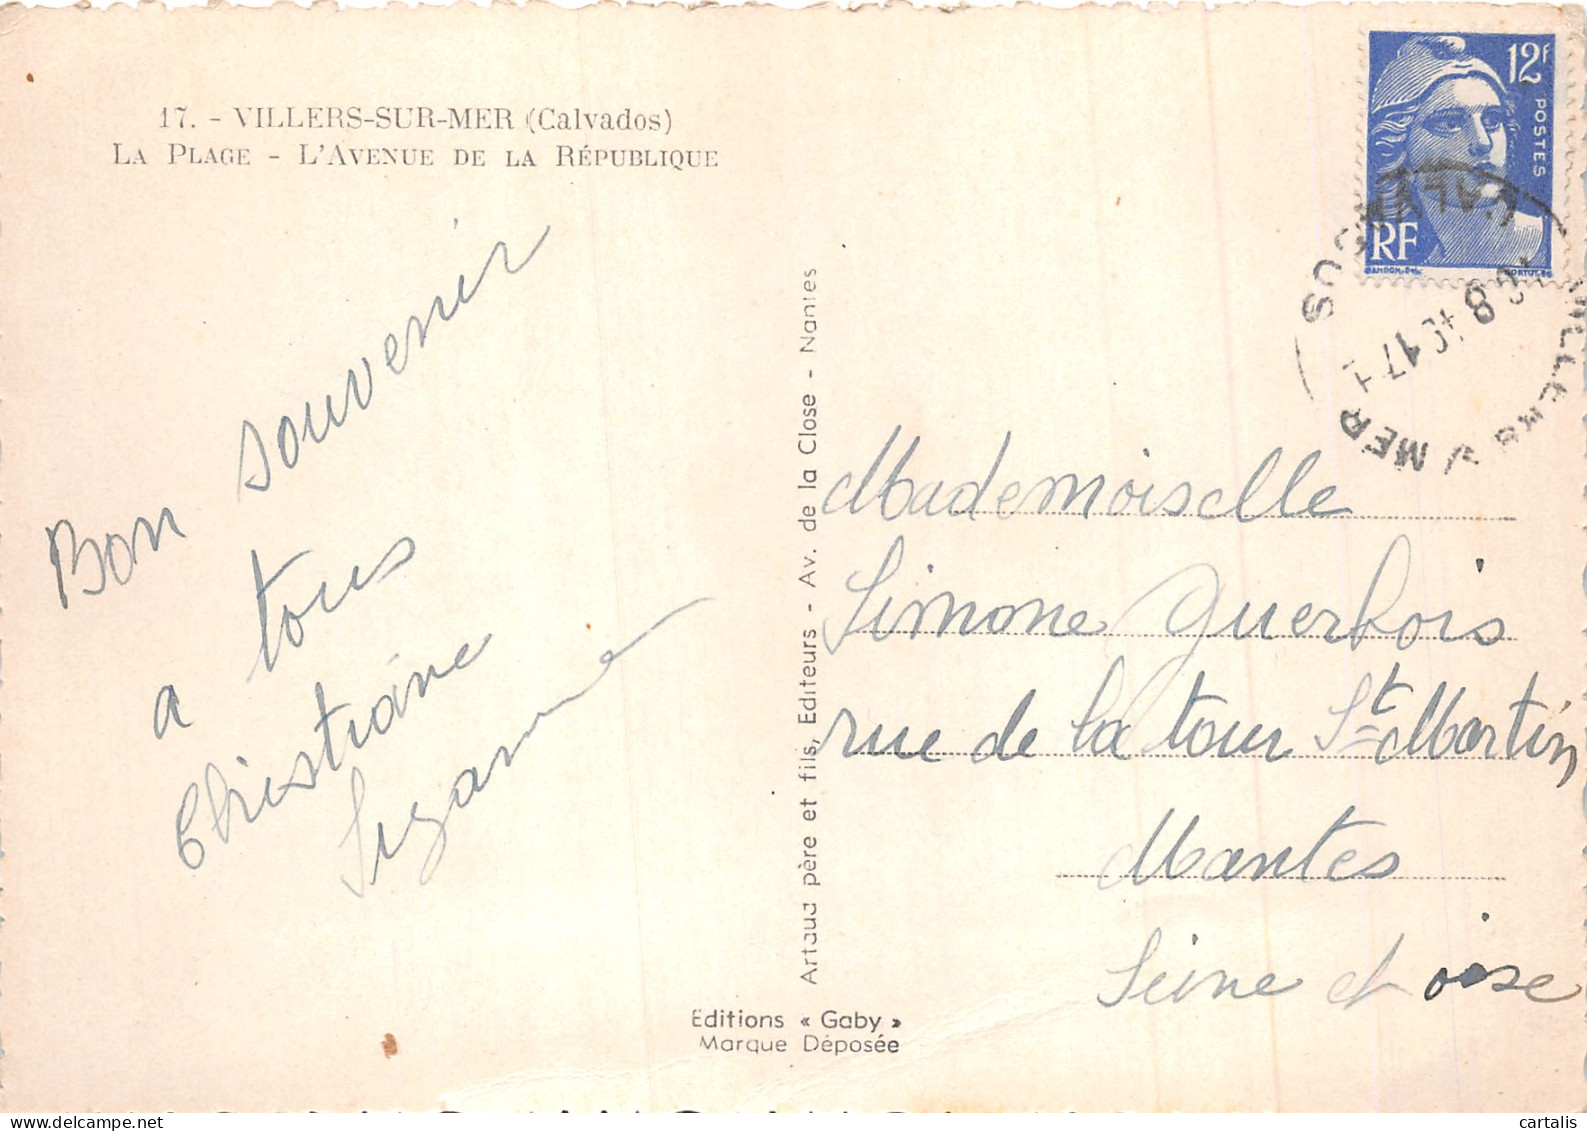 17. - VILLERS-SUR-MER (Calvados)
LA PLAGE - L'AVENUE DE LA RÉPUBLIQUE
Bon souvenir
a tous
Christiane
Suzanne
Artaud père et fils, Editeurs - Av. de la Close - Nantes
Editions « Gaby »
Marque Déposée
12F
POSTES
RF
VILLERS S/ MER
Mademoiselle
Simone Guerbois
rue de la tour St Martin
Mantes
Seine et oise
cartalis